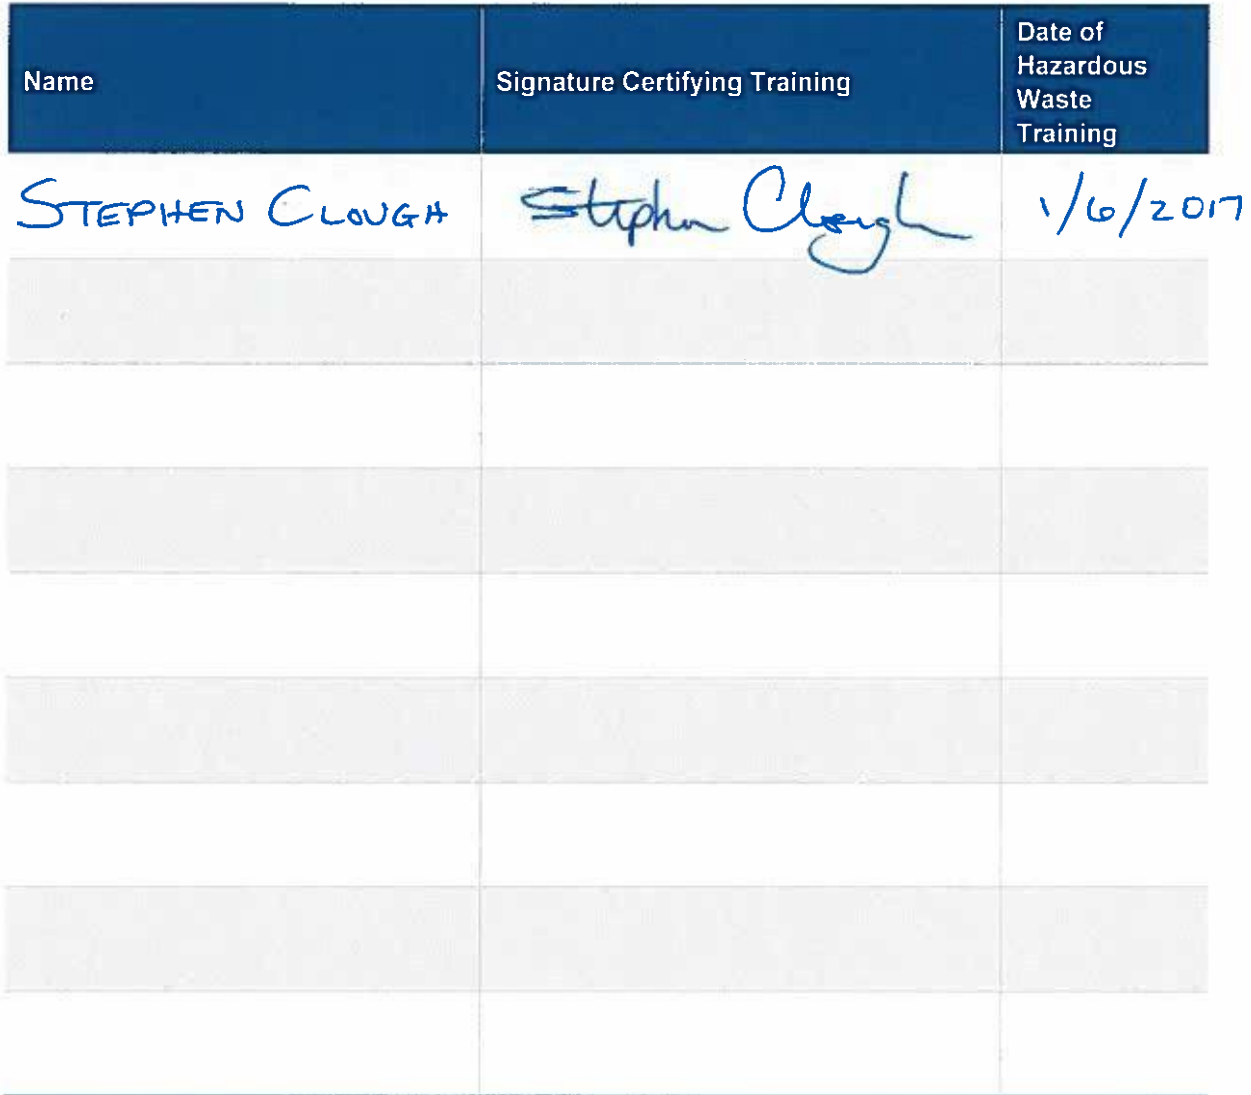 Name
Signature Certifying Training
Date of
Hazardous
Waste
Training
STEPHEN CLOUGH
Stephen Clough
1/6/2017